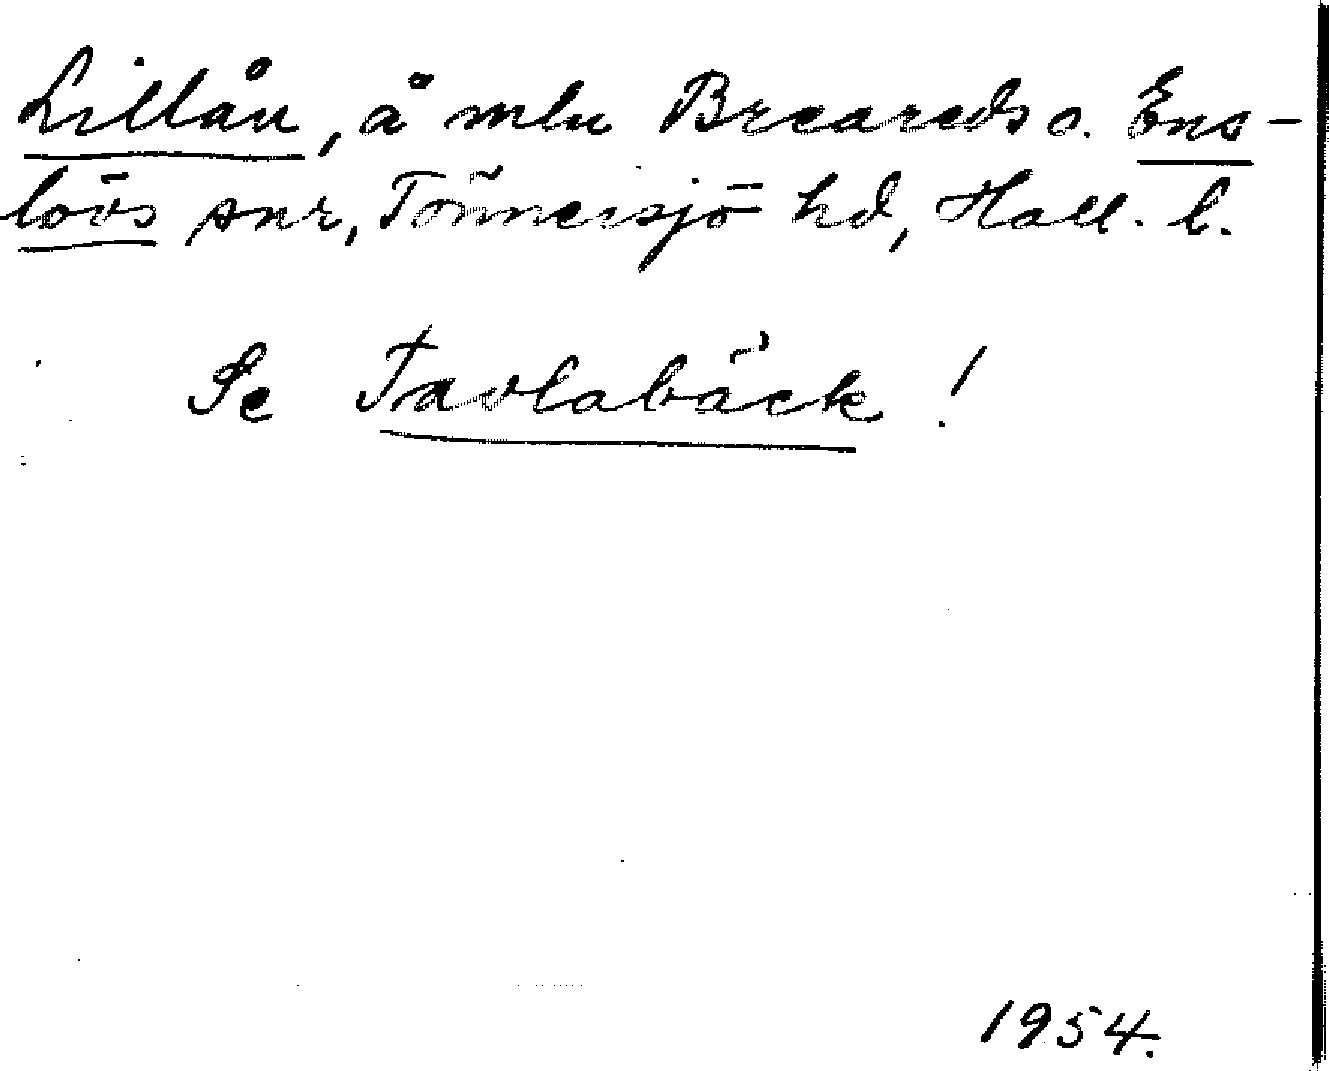 Lillån, å mln Breareds o. Ens-
lövs snr, Tönnersjö hd, Hall. l.
Se Tavlabäck!
1954.